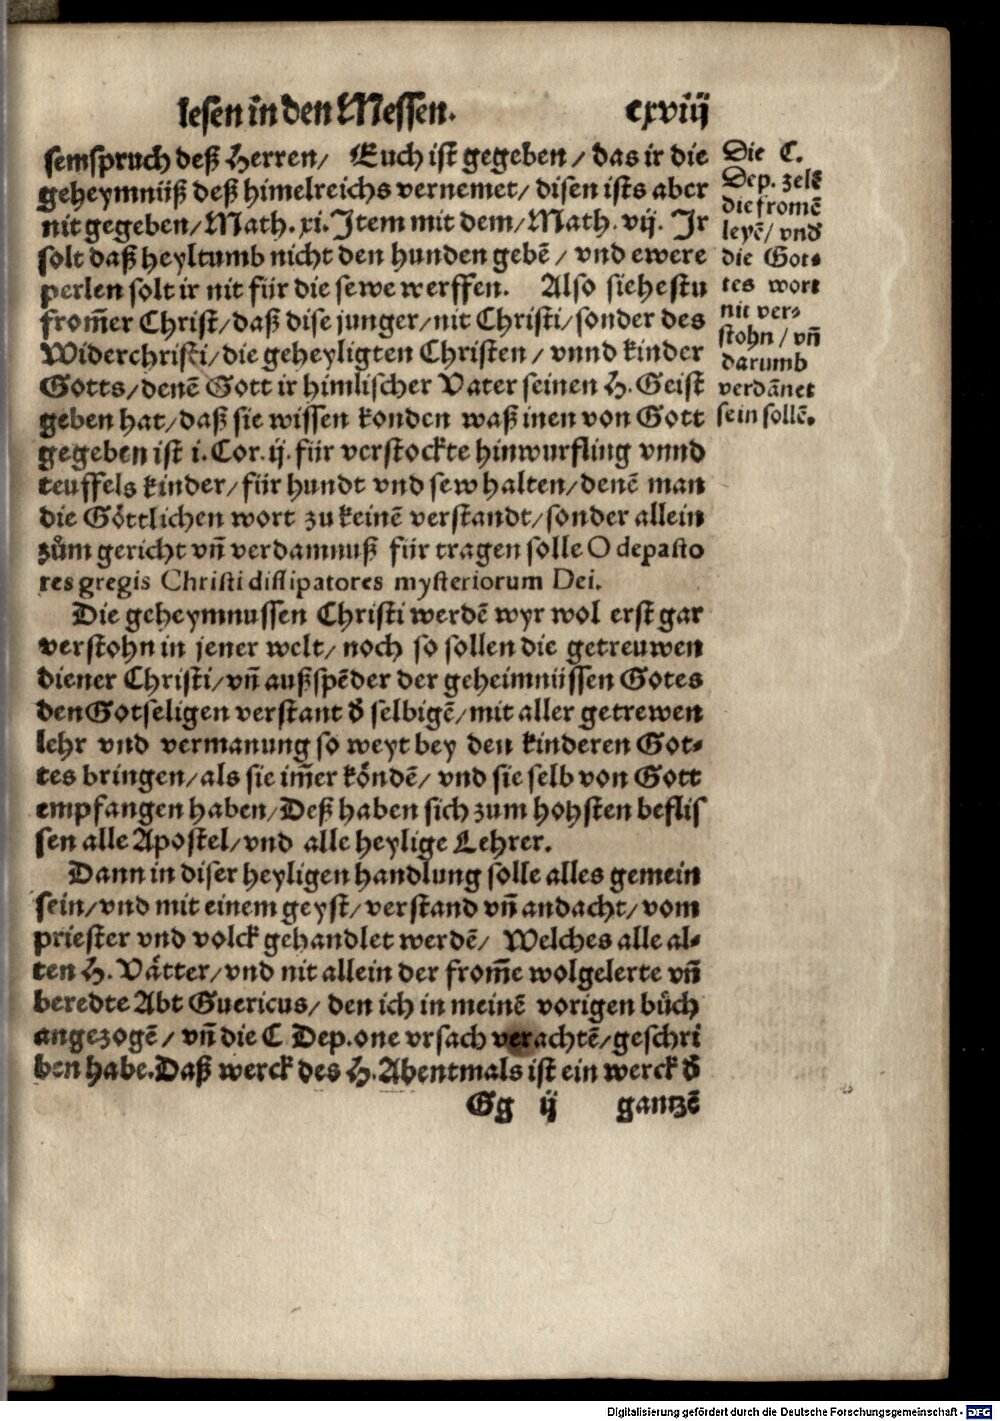 lesen in den Messen. cxviij
semspruch deß Herren/ Euch ist gegeben/ das ir die
geheymnüß deß himelreichs vernemet/ disen ists aber
nit gegeben/ Math. xi. Item mit dem/ Math. vij. Ir
solt daß heyltumb nicht den hunden gebē/ vnd ewere
perlen solt ir nit für die sewe werffen. Also siehestu
from̄er Christ/ daß dise junger/ nit Christi/ sonder des
Widerchristi/ die geheyligten Christen/ vnnd kinder
Gotts/ denē Gott ir himlischer Vater seinen H. Geist
geben hat/ daß sie wissen konden waß inen von Gott
gegeben ist i. Cor. ij. für verstockte hinwurfling vnnd
teuffels kinder/ für hundt vnd sew halten/ denē man
die Göttlichen wort zu keinē verstandt/ sonder allein
zům gericht vn̄ verdamnuß für tragen solle O depasto
res gregis Christi dissipatores mysteriorum Dei.
Die geheymnussen Christi werdē wyr wol erst gar
verstohn in jener welt/ noch so sollen die getreuwen
diener Christi/ vn̄ außspēder der geheimnüssen Gotes
den Gotseligen verstant d̄ selbigē/ mit aller getrewen
lehr vnd vermanung so weyt bey den kinderen Got-
tes bringen/ als sie im̄er köndē/ vnd sie selb von Gott
empfangen haben/ Deß haben sich zum hohsten beflis
sen alle Apostel/ vnd alle heylige Lehrer.
Dann in diser heyligen handlung solle alles gemein
sein/ vnd mit einem geyst/ verstand vn̄ andacht/ vom
priester vnd volck gehandlet werdē/ Welches alle al-
ten H. Vätter/ vnd nit allein der from̄e wolgelerte vn̄
beredte Abt Guericus/ den ich in meinē vorigen bůch
angezogē/ vn̄ die C Dep. one vrsach verachtē/ geschri
ben habe. Daß werck des H. Abentmals ist ein werck d̄
Gg ij gantzē
Die C.
Dep. zelt
die fromē
leyē/ vnd
die Got-
tes wort
nit ver-
stohn/ vn̄
darumb
verdānet
sein sollē.
Digitalisierung gefördert durch die Deutsche Forschungsgemeinschaft - DFG